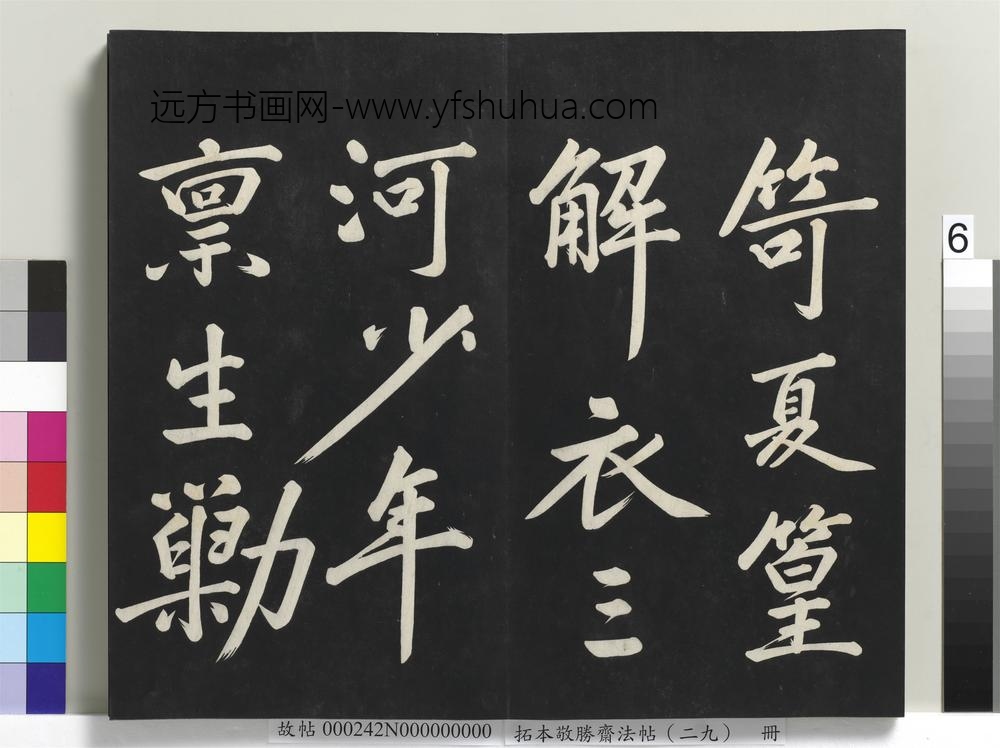 远方书画网-www.yfshuhua.com
笴夏篁
解衣三
河少年
禀生勦
6
故帖 000242N000000000
拓本敬勝齋法帖（二九） 冊